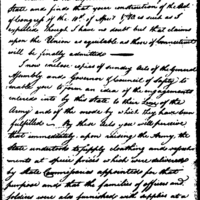 State and finds that your construction of the Act
of Congress of the 10th of Apr 1780 is such as I
expected though I have no doubt but that claims
upon the Union as equitable as those of Connecticut
will be finally admitted
I now enclose copies of sundry Acts of the General
Assembly and Governor & Council of Safety to
enable you to form an idea of the engagements
entered into by this State to their Line of the
Army and of the mode by which they have been
fulfilled in. By these Acts you will perceive
that immediately upon raising the Army, the
State undertook to supply cloathing and refresh
ments at specie prices which were delivered
by State Commissaries appointed for that
purpose and that the families of officers and
soldiers were also furnished with supplies at a